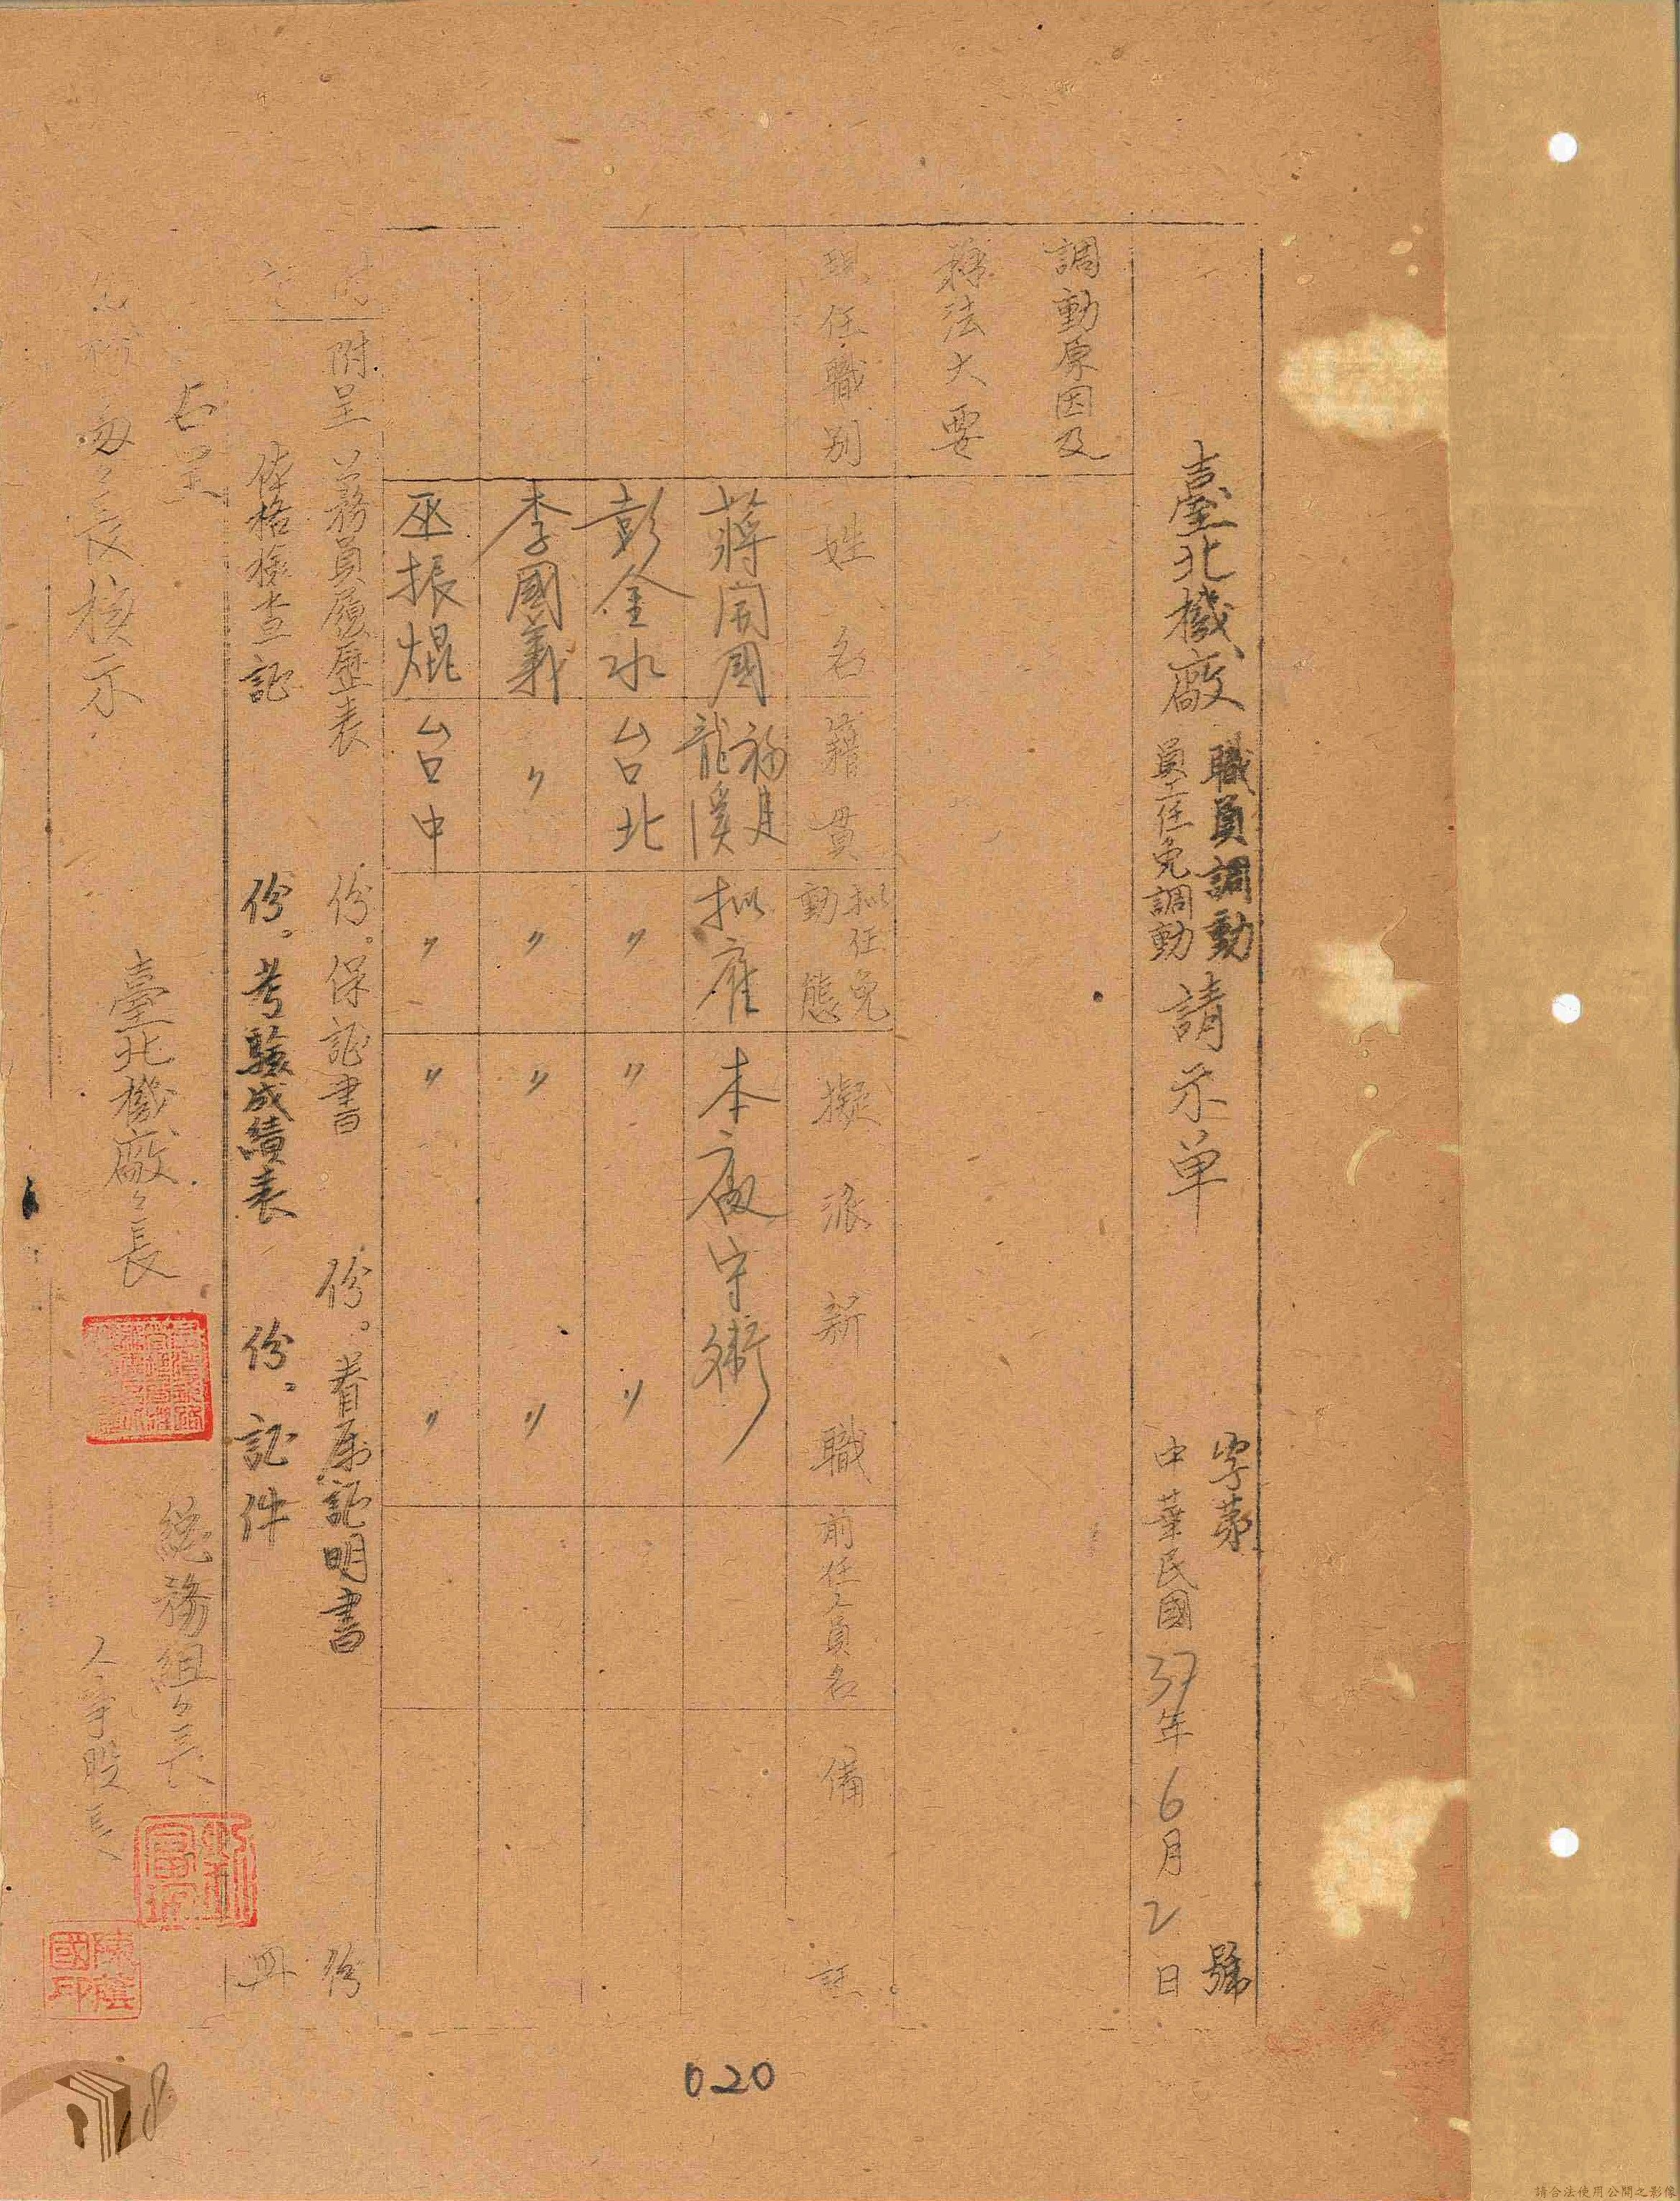 臺北機廠
職員調動
員工任免調動
請示单
字第 號
中華民國37年6月2日
調動原因及
辦法大要
現任職別
姓名
籍貫
拟任免
動態
擬派新職
前任人員名
備註
蔣周國
福建
龍溪
拟雇
本廠守衛
彭金水
台北
〃
〃
〃
李國義
〃
〃
〃
〃
巫振焜
台中
〃
〃
〃
附呈 公務員履歷表 份。保証書 份。眷屬証明書 份
体格檢查証 份。考驗成績表 份。証件
右呈
長核示
臺北機廠々長
總務組々長
人事股長
陳蔭
國印
020
18
請合法使用公開之影像